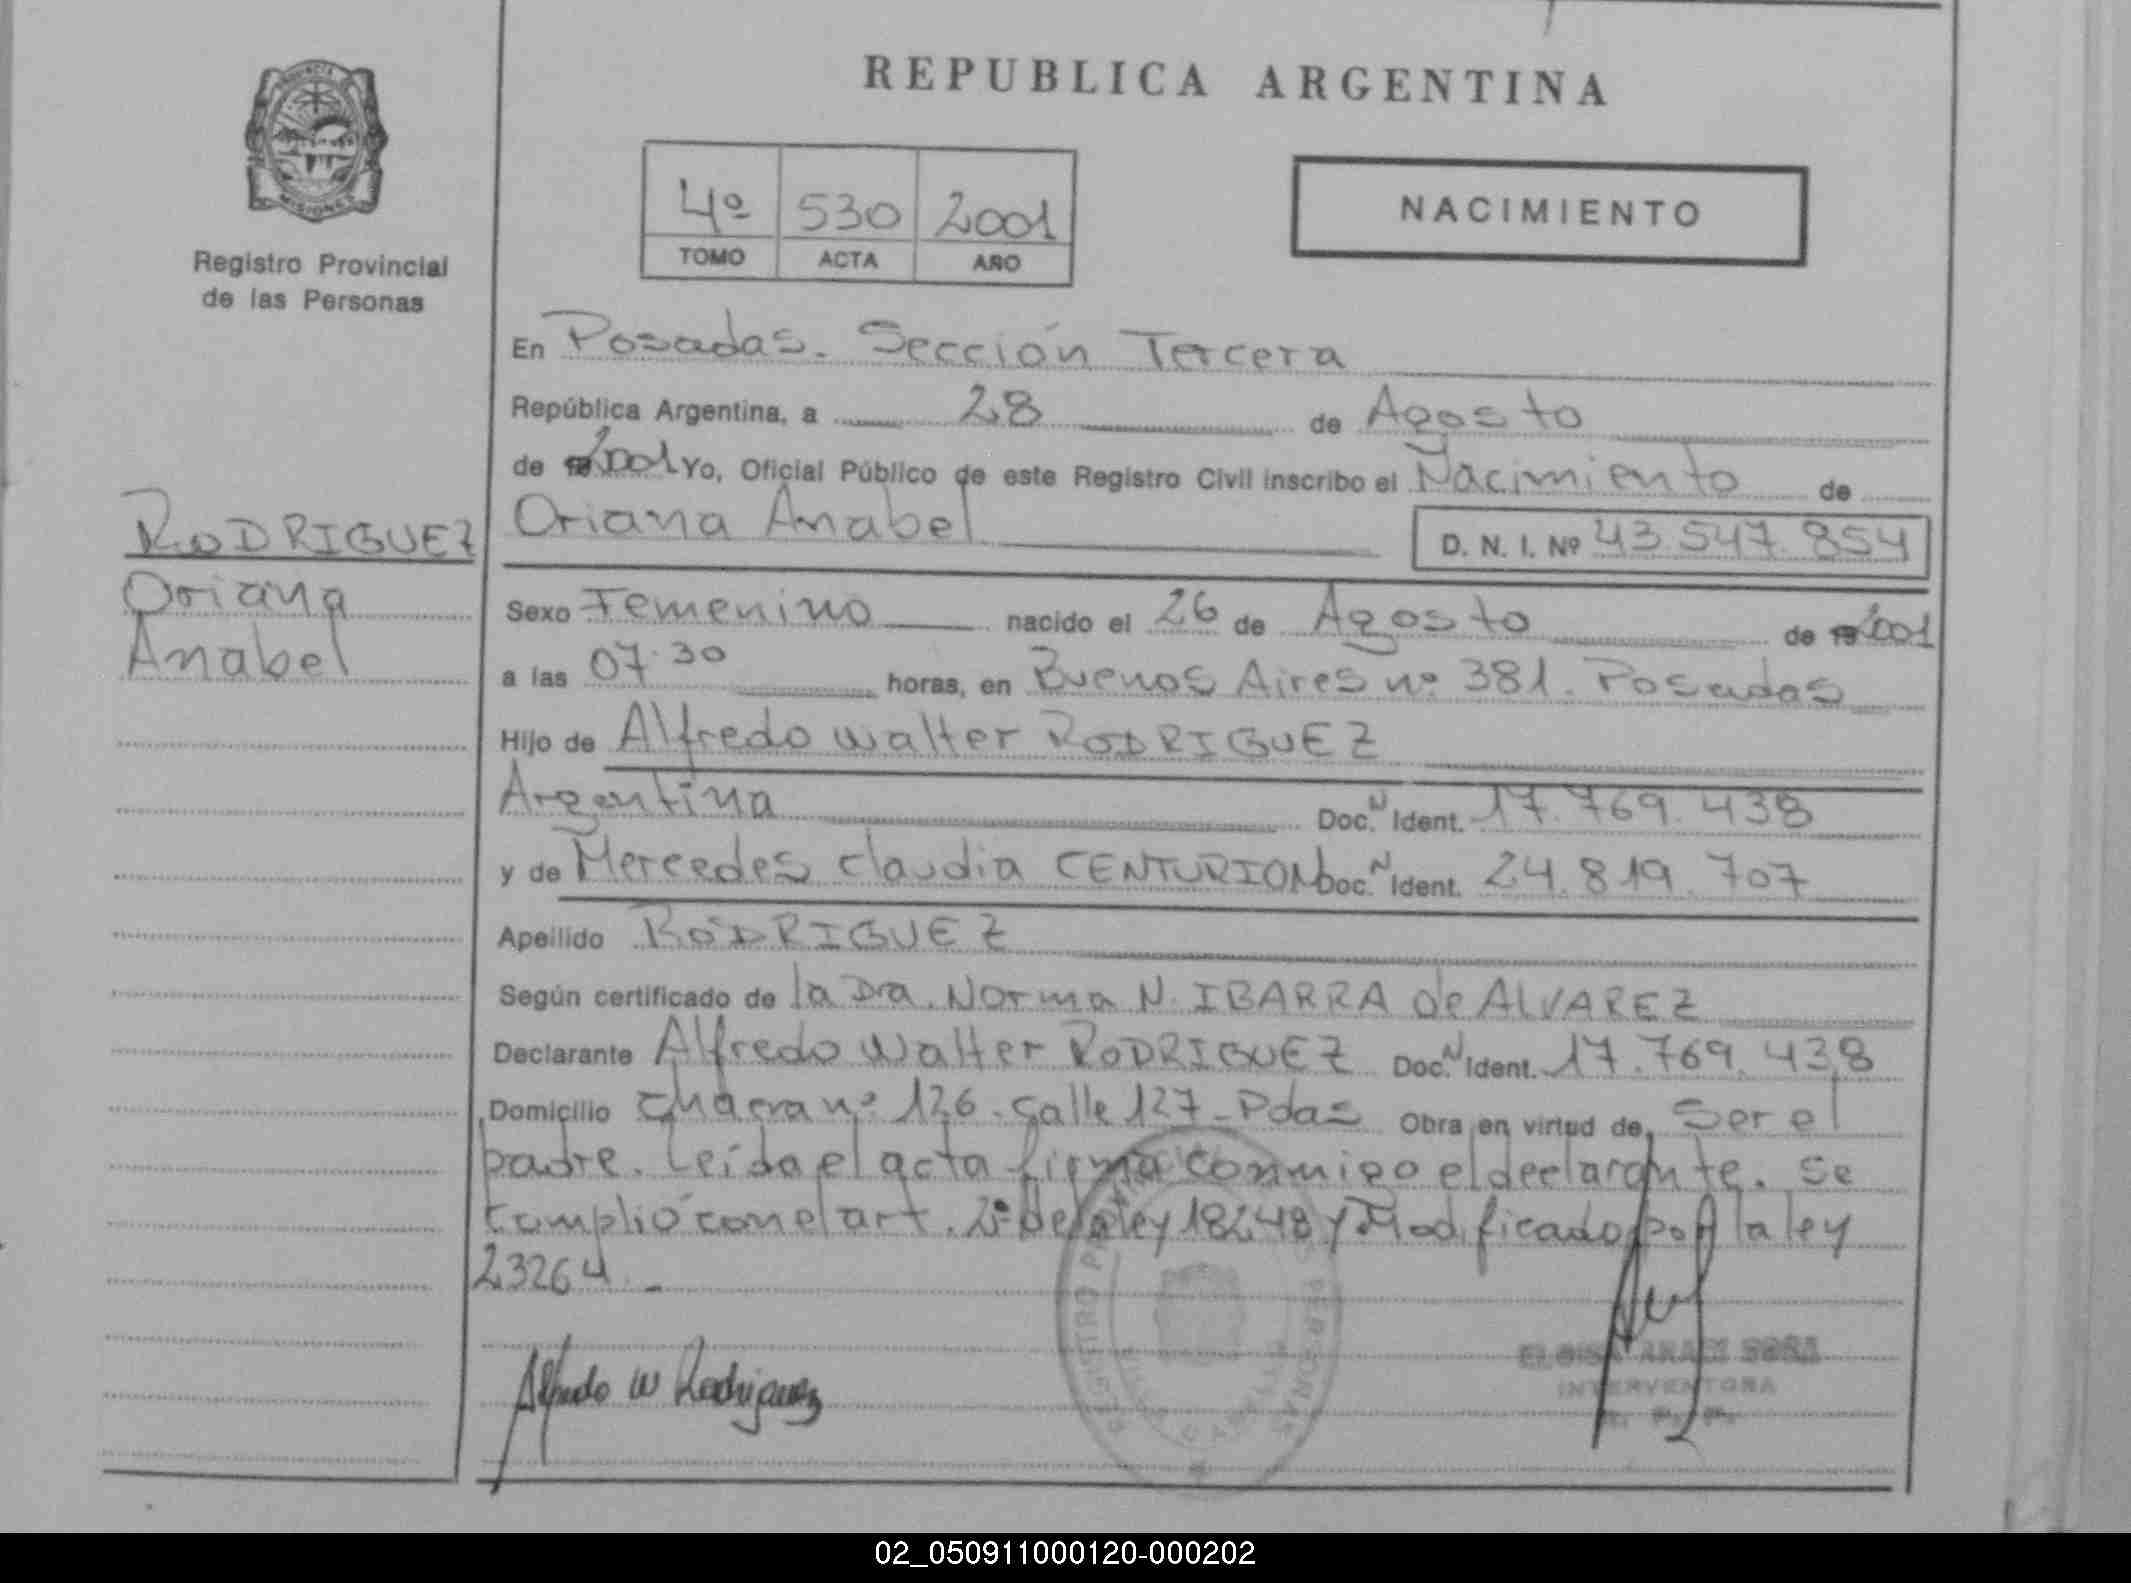 REPUBLICA ARGENTINA
PROVINCIA
MISIONES
Registro Provincial
de las Personas
4º 530 2001
TOMO ACTA AÑO
NACIMIENTO
En Posadas. Sección Tercera
República Argentina, a 28 de Agosto
de 2001 Yo, Oficial Público de este Registro Civil inscribo el Nacimiento de
Oriana Anabel D. N. I. Nº 43.547.854
RODRIGUEZ
Oriana
Anabel
Sexo Femenino nacido el 26 de Agosto de 2001
a las 07.30 horas, en Buenos Aires nº 381. Posadas
Hijo de Alfredo Walter RODRIGUEZ
Argentina Doc. N Ident. 17.769.438
y de Mercedes Claudia CENTURION Doc. N Ident. 24.819.707
Apellido RODRIGUEZ
Según certificado de la Dra. Norma N. IBARRA de ALVAREZ
Declarante Alfredo Walter RODRIGUEZ Doc. N Ident. 17.769.438
Domicilio Chacra nº 126. Calle 127- Pdas Obra en virtud de Ser el
padre. Leída el acta firma conmigo el declarante. Se
cumplió con el art. 2º de la ley 18248 y Modificado por la ley
23264.-
Alfredo W Rodriguez
REGISTRO PERSONAS
INTERVENTORA
02_050911000120-000202